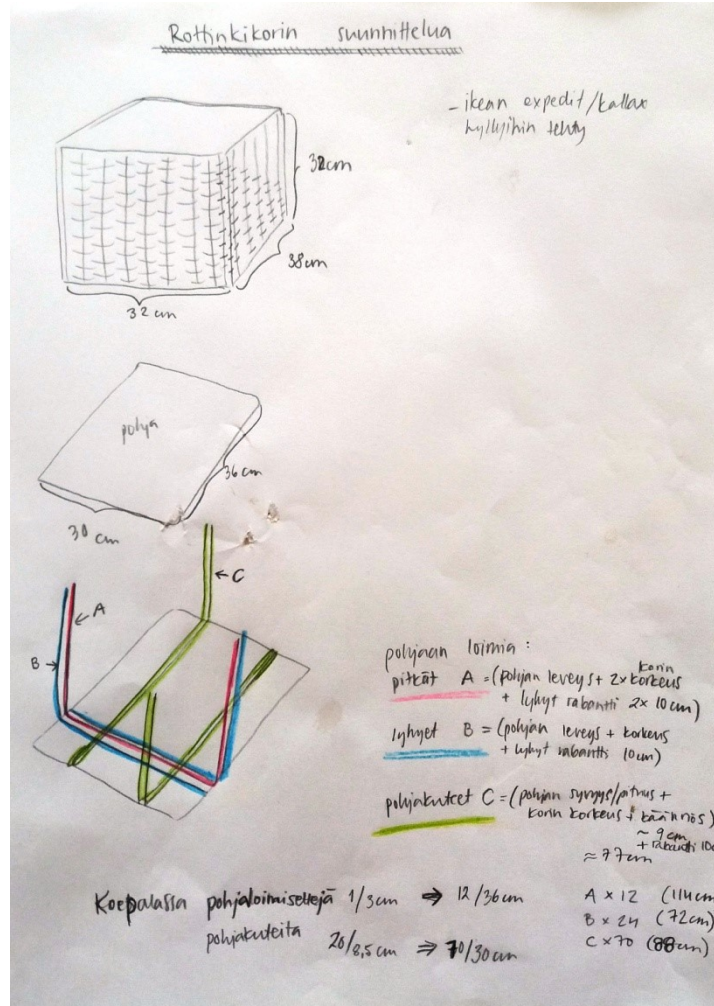 Rottinkikorin suunnittelua
- ikean expedit/kallax
hyllyihin tehty
32cm
38cm
32 cm
pohja
36 cm
30 cm
C
A
B
pohjaan loimia:
pitkät A = (pohjan leveys + 2x korin korkeus
+ lyhyt rabantti 2x 10cm)
lyhyet B = (pohjan leveys + korkeus
+ lyhyt rabantti 10cm)
pohjakuteet C = (pohjan syvyys/pituus +
korin korkeus + käännös)
~ 9cm
+ rabantti 10c
≈ 77cm
Koepalassa pohjaloimisettejä 1/3cm ⇒ 12/36cm
pohjakuteita 20/8,5cm ⇒ 70/30cm
A x 12 (114cm)
B x 24 (72cm)
C x 70 (88cm)